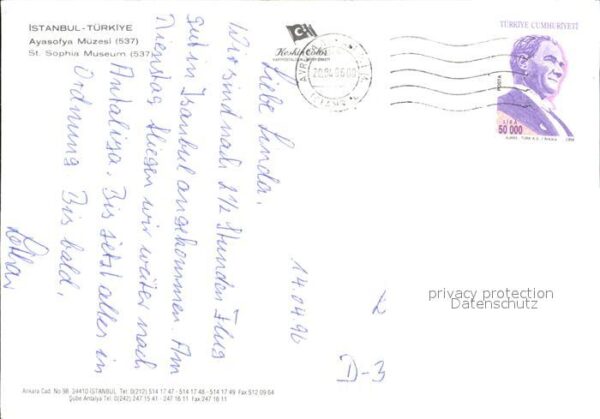 İSTANBUL-TÜRKİYE
Ayasofya Müzesi (537)
St. Sophia Museum (537)
Keskin Color
TÜRKİYE CUMHURİYETİ
POSTA
LİRA
50 000
20.04.96
Liebe Linda,
Wir sind nach 2 1/2 Stunden Flug
gut in Istanbul angekommen. Am
Dienstag fliegen wir weiter nach
Antaliya. Bis jetzt alles in
Ordnung. Bis bald,
Lothar
14.04.96
D-3
privacy protection
Datenschutz
Ankara Cad. No 98 34410 İSTANBUL Tel: 0(212) 514 17 47 - 514 17 48 - 514 17 49 Fax 512 09 64
Şube Antalya Tel: 0(242) 247 15 41 - 247 16 11 Fax 247 16 11